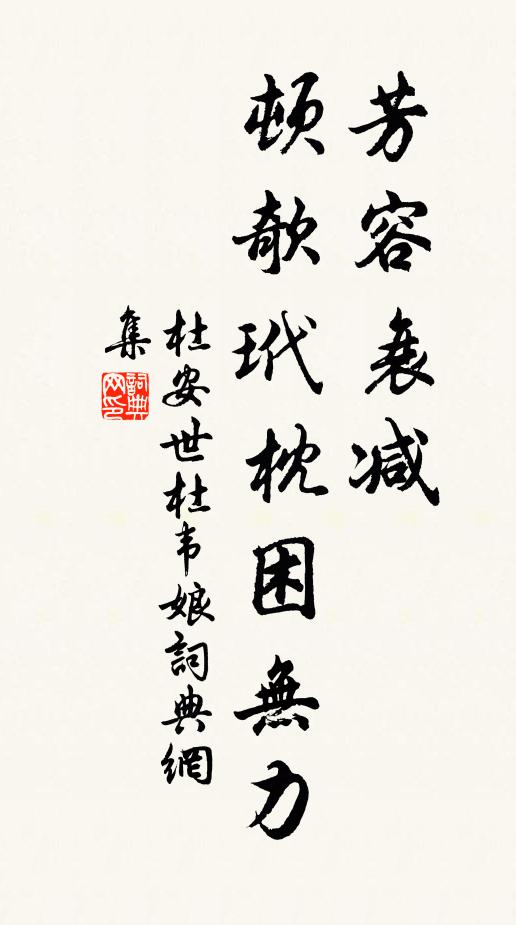 芳容衰减
頓欹玳枕困無力
杜安世杜韦娘詞典網
集
詞典
网印